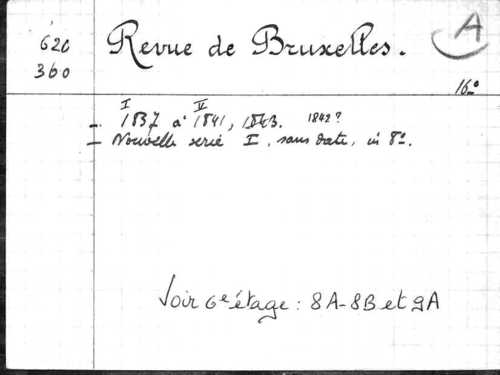 620
360
Revue de Bruxelles.
A
16°
I V
– 1837 à 1841, 1843. 1842?
– Nouvelle serie I, sans date, in 8°.
Voir 6e étage : 8A-8B et 9A